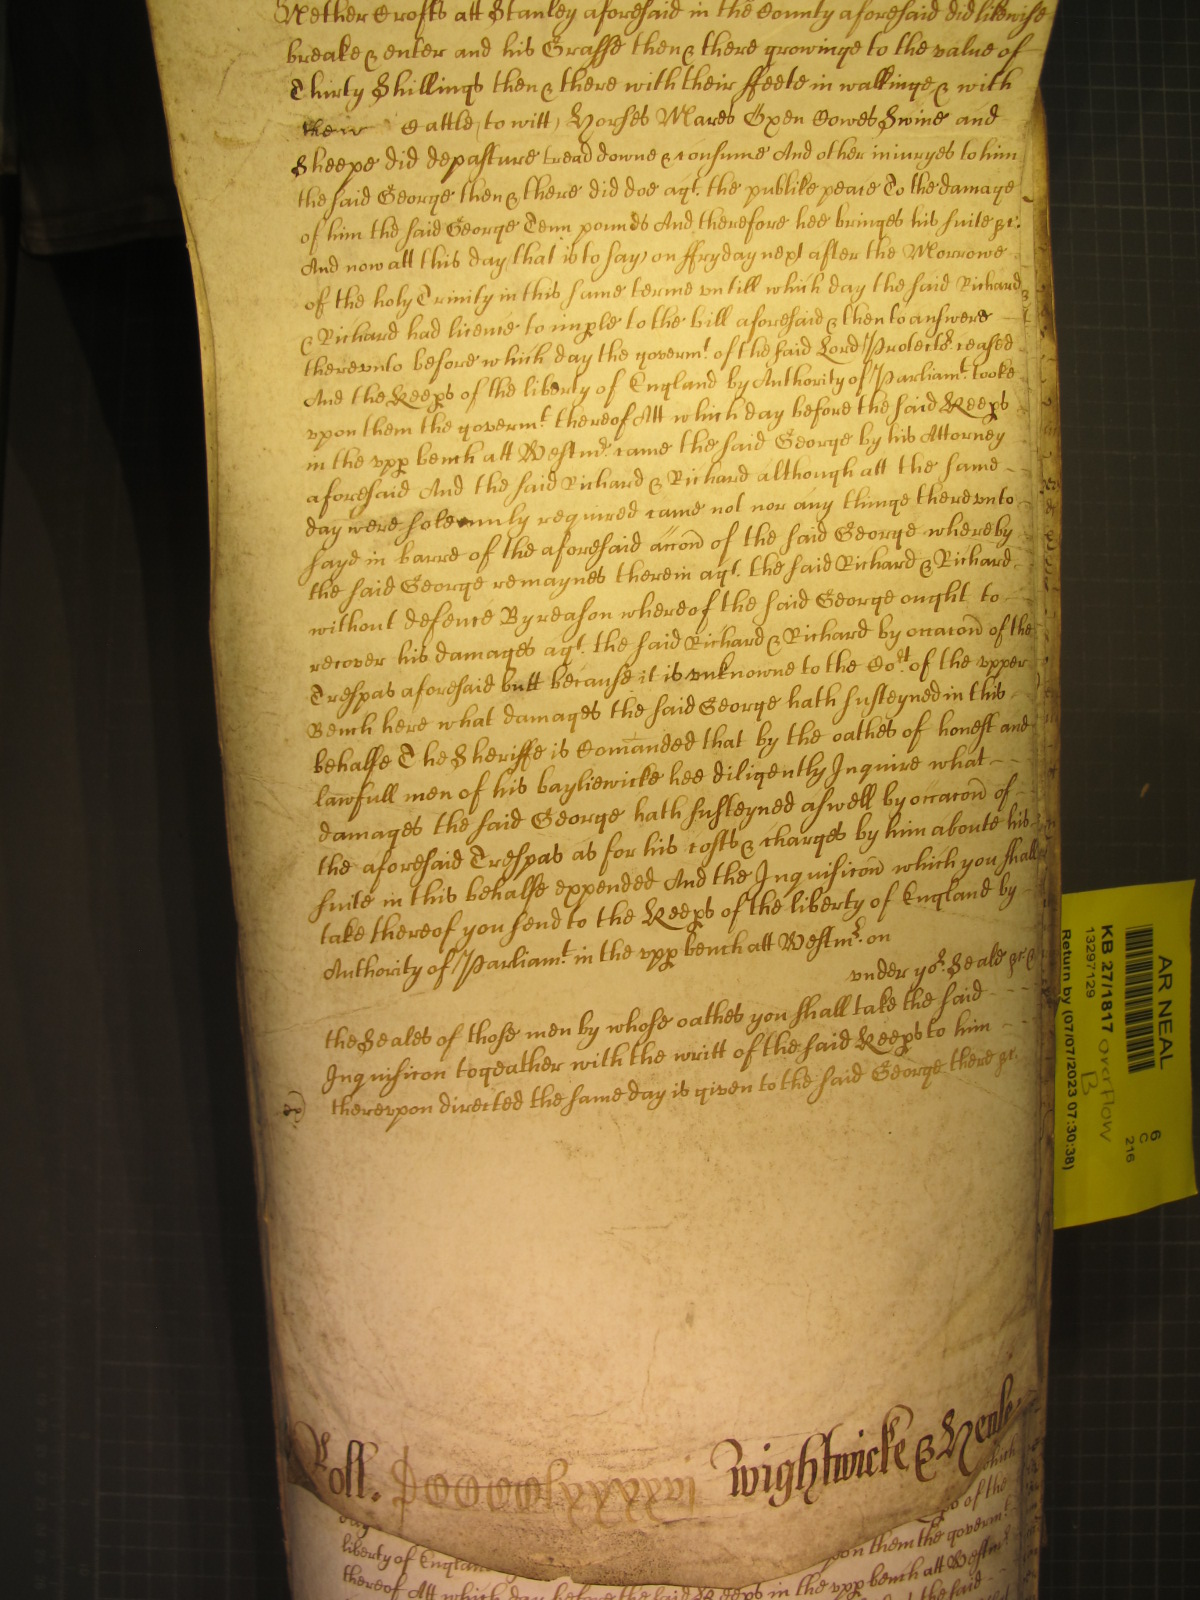 Nether Crofts att Stanley aforesaid in the County aforesaid did likewise
breake & enter and his Grasse then & there growinge to the value of
Thirty Shillings then & there with their ffeete in walkinge & with
their Cattle (to witt) Horses Mares Oxen Cowes Swine and
Sheepe did depasture tread downe & consume And other iniuryes to him
the said George then & there did doe agt. the publike peace To the damage
of him the said George Tenn pounds And therefore hee bringes his suite &c.
And now att this day that is to say on ffryday next after the Morrowe
of the holy Trinity in this same terme vntill which day the said Richard
& Richard had licence to imple to the bill aforesaid & then to answere
therevnto before which day the governt. of the said Lord Protectr. ceased
And the Keeps of the liberty of England by Authority of Parliamt. tooke
vpon them the governt. thereof Att which day before the said Keeps
in the vpp bench att Westmr. came the said George by his Attorney
aforesaid And the said Richard & Richard although att the same
day were solemnly required came not nor any thinge therevnto
sayd in barre of the aforesaid accon of the said George whereby
the said George remaynes therein agt. the said Richard & Richard
without defence By reason whereof the said George ought to
recover his damages agt. the said Richard & Richard by occacon of the
Trespas aforesaid butt because it is vnknowne to the Cort. of the vpper
Bench here what damages the said George hath susteyned in this
behalfe The Sheriffe is Comanded that by the oathes of honest and
lawfull men of his bayliewicke hee diligently Inquire what
damages the said George hath susteyned aswell by occacon of
the aforesaid Trespas as for his costs & charges by him aboute his
suite in this behalfe expended And the Inquisicon which you shall
take thereof you send to the Keeps of the liberty of England by
Authority of Parliamt. in the vpp bench att Westmr. on
vnder yor. Seale &c &
the Seales of those men by whose oathes you shall take the said
Inquisicon togeather with the writt of the said Keeps to him
therevpon directed the same day is given to the said George there &c.
Roll. Wightwicke & Neale
which
of the
liberty of England
vpon them the governt.
thereof Att which day before the said Keeps in the vpp bench att Westmr.
the said
AR NEAL
KB 27/1817 overflow
B
13297129
Return by (07/07/2023 07:30:38)
6
C
216